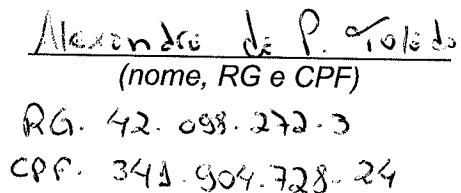 Alexandre de P. Toledo
(nome, RG e CPF)
RG. 42.098.272-3
CPF. 341.904.728-24